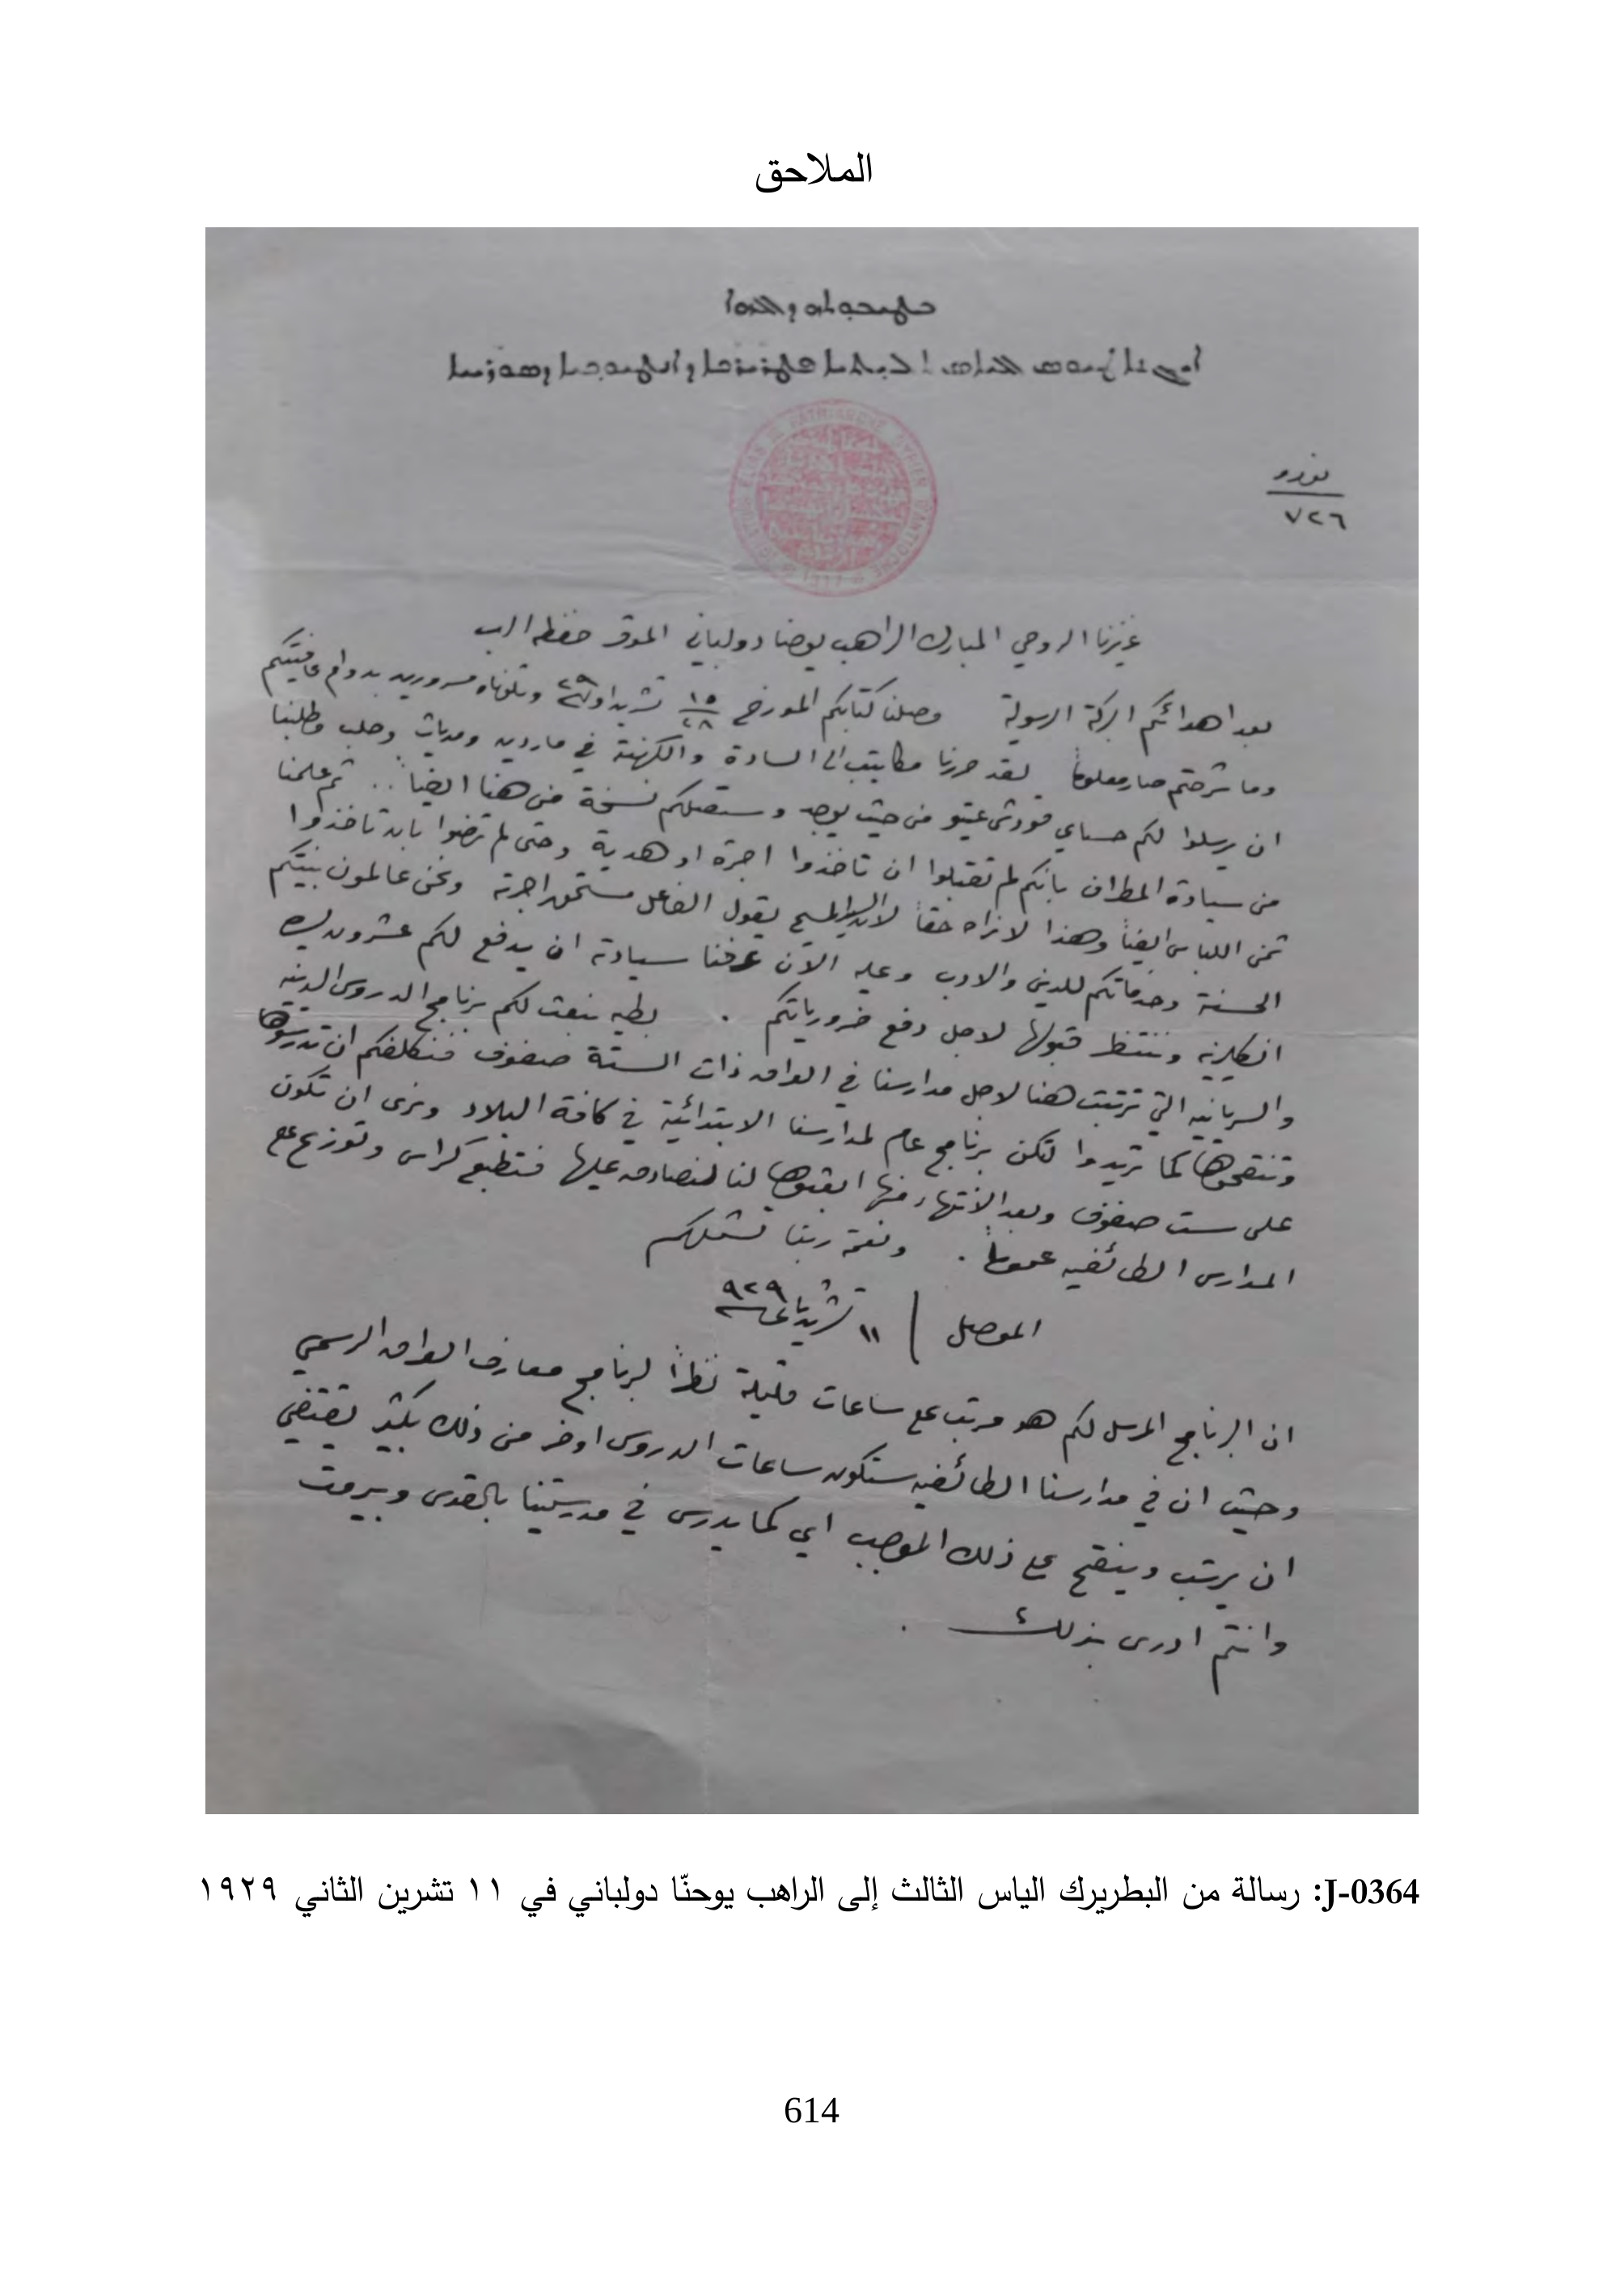 الملاحق
ܒܛܝܒܘܬܗ ܕܐܠܗܐ
نورو
٧٢٦
عزيزنا الروحي المبارك الراهب يوحنا دولباني الموقر حفظه الرب
بعد اهدائكم البركة الرسولية وصلنا كتابكم المورخ ١٥/٢٨ تشرين اول ٢٩ وتلوناه مسرورين بدوام عافيتكم
وما شرحتم صار معلوماً لقد حررنا مكاتيب الى السادة والكهنة في ماردين ومديات وحلب وطلبنا
ان يرسلوا لكم حساي قورش عتيق من حيث يوجد وستصلكم نسخة من هنا ايضاً .. ثم علمنا
من سيادة المطران بانكم لم تقبلوا ان تاخذوا اجرة او هدية وحتى لم ترضوا بان تاخذوا
ثمن اللباس ايضاً وهذا لا نراه حقاً لان السيد المسيح يقول الفاعل مستحق اجرته ونحن عالمون بنيتكم
الحسنة وخدماتكم للدين والادب وعليه الآن عرفنا سيادته ان يدفع لكم عشرون ليره
انكليزيه وننتظر قبولها لاجل دفع ضرورياتكم . بطيه نبعث لكم برنامج الدروس الدينيه
والسريانيه التي ترتبت هنا لاجل مدارسنا في العراق ذات الستة صفوف فنكلفكم ان تدرسوها
وتنقحوها كما تريدوا لتكن برنامج عام لمدارسنا الابتدائية في كافة البلاد ونرى ان تكون
على ست صفوف وبعد الانتهاء منها ابعثوها لنا لنصادق عليها فتطبع كراس وتوزع على
المدارس الطائفيه عموماً . ونعمة ربنا تشملكم
الموصل / ١١ تشرين ثاني ٩٢٩
ان البرنامج المرسل لكم هو مرتب على ساعات قليلة نظراً لبرنامج معارف العراق الرسمي
وحيث ان في مدارسنا الطائفيه ستكون ساعات الدروس اوفر من ذلك بكثير يقتضي
ان يرتب وينقح على ذلك الموجب اي كما يدرس في مدرستينا بالقدس وبيروت
وانتم ادرى بذلك .
J-0364: رسالة من البطريرك الياس الثالث إلى الراهب يوحنّا دولباني في ١١ تشرين الثاني ١٩٢٩
614